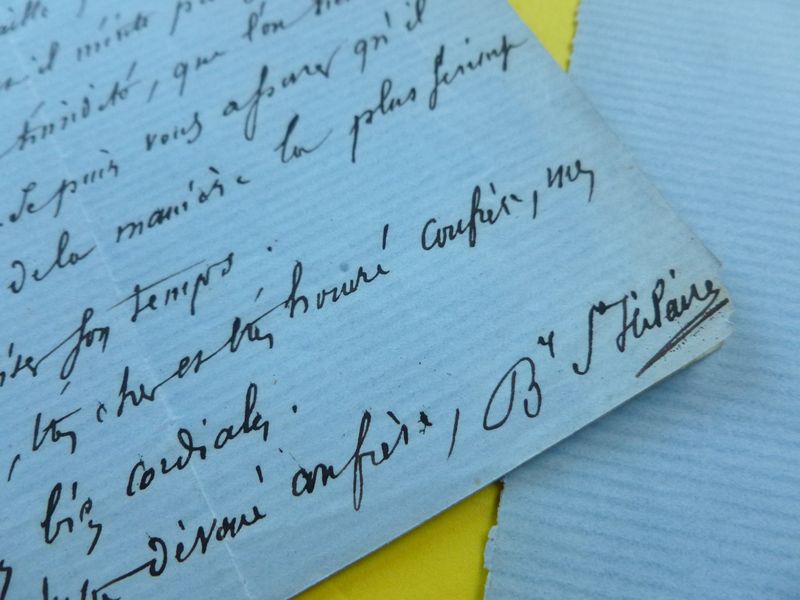 aille,
il mérite
timidité, que l'on
Je puis vous assurer qu'il
de la manière la plus
son temps.
, très cher et très honoré confrère, mes
bien cordiales.
dévoué confrère, By St Hilaire